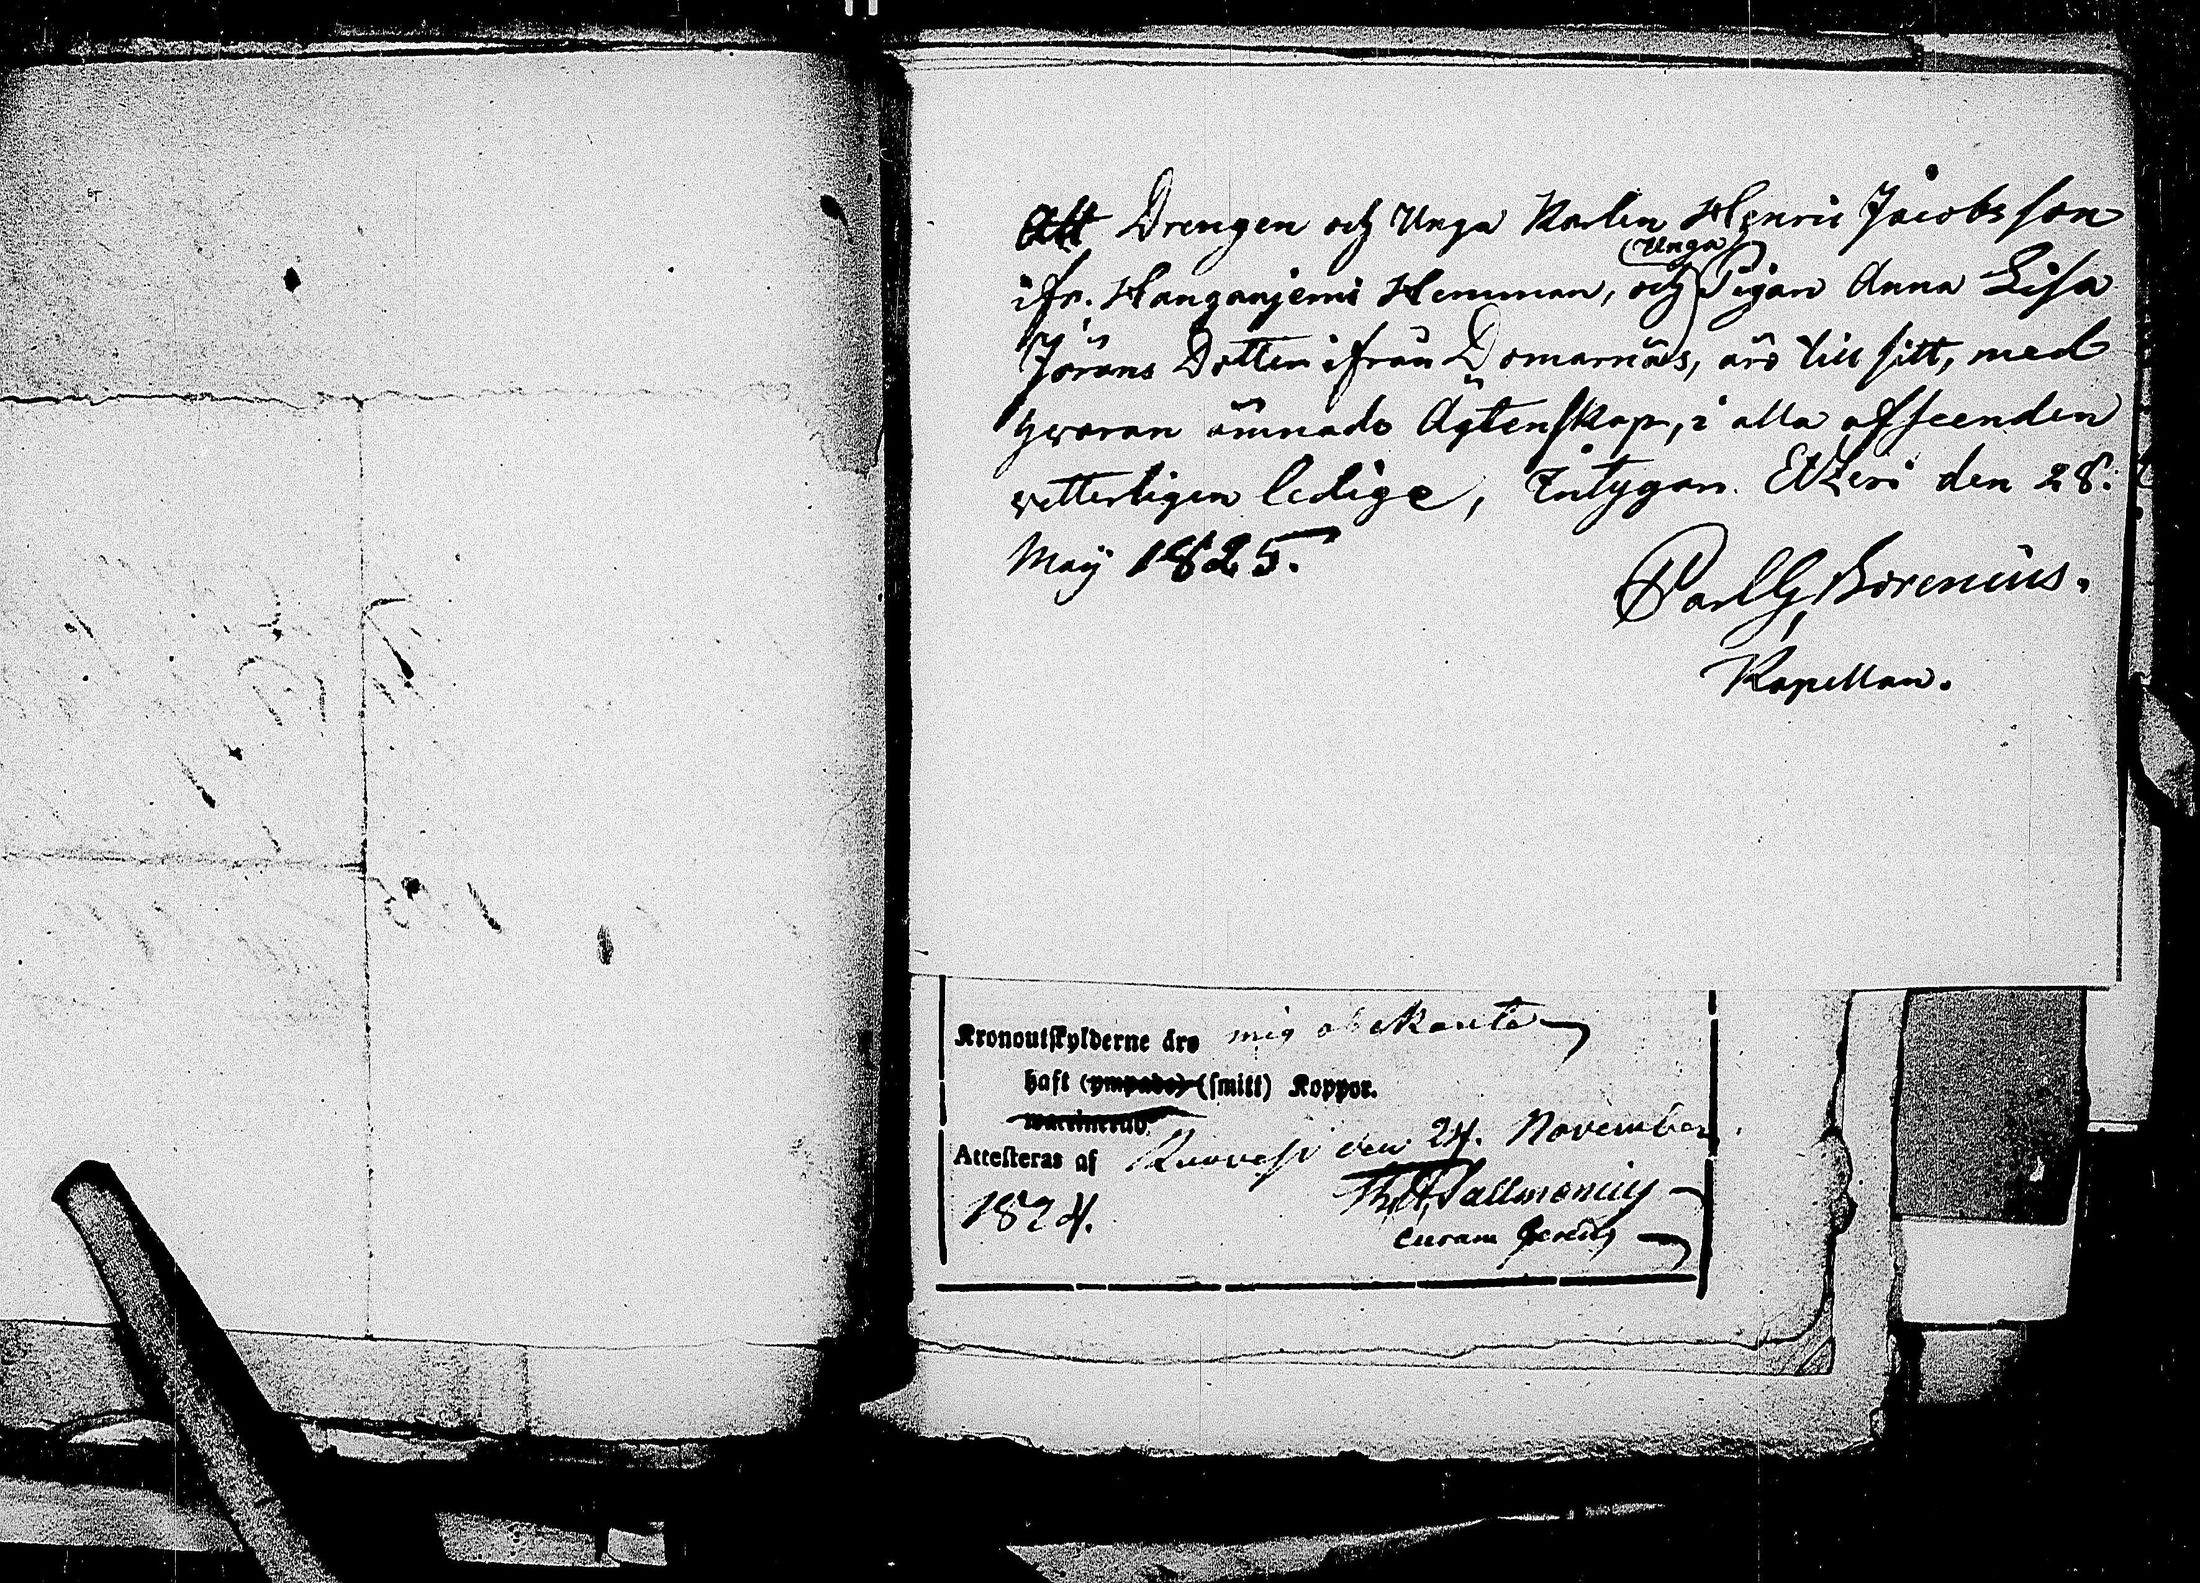 Att Drengen och Unga Karlen Henric Jacobsson
ifr. Hanganjemi Hemman, och Unga Pigan Anna Lisa
Jörans Dotter ifrån Domarnäs, äro till sitt, med
hvaran ämnade Ägtenskap, i alla afseenden
vetterligen ledige, Intygar. Etzeri den 28.
Maij 1825.
Carl G. Borenius.
Kapellan.
Kronoutskylderne äro mig obekanta
haft (ympade) (smitt) Koppor.
vaccinerad.
Attesteras af Ruovesi den 24. November
1824.
Sallmenius
curam gerens